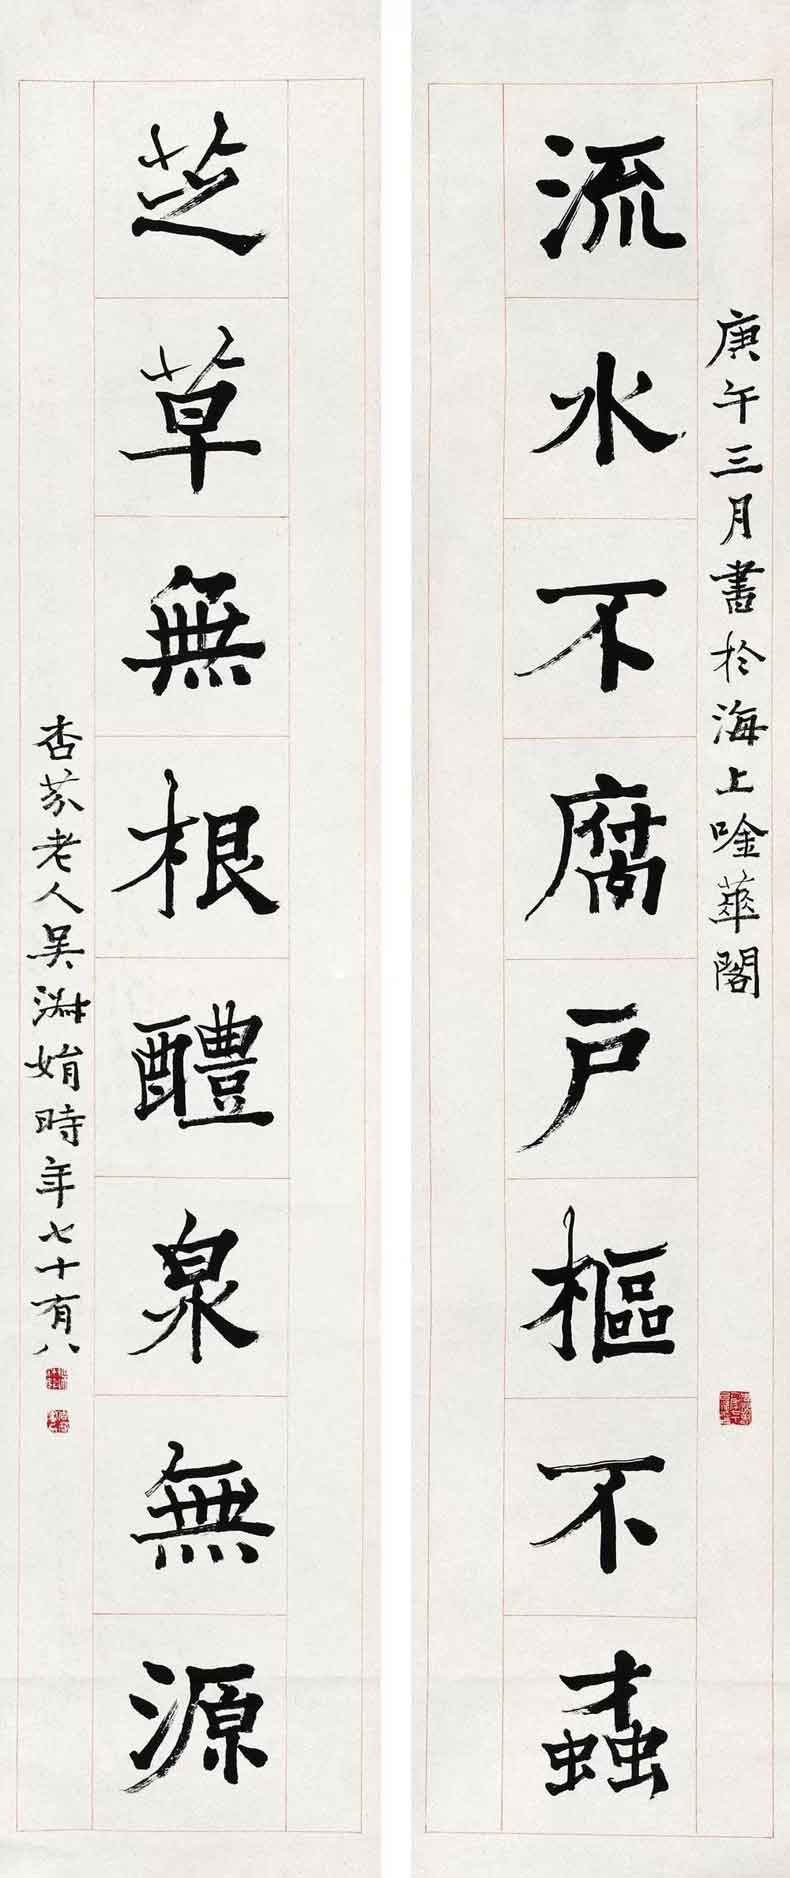 庚午三月書於海上唫蕐閣
流水不腐户樞不螙
芝草無根醴泉無源
杏芬老人吳淑娟時年七十有八